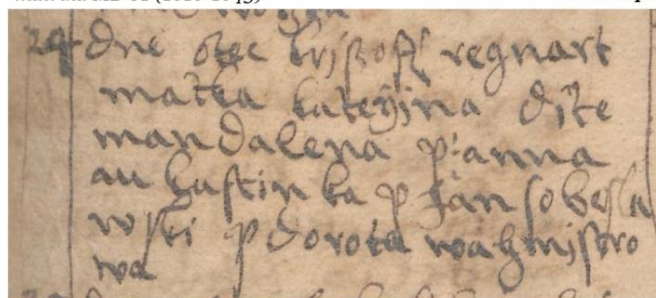 24 dne otec kristoff regnart
matka kateřina dite
mandalena p: anna
au hustin ka p Jan sobesla
wski p dorota wahmistro
wa